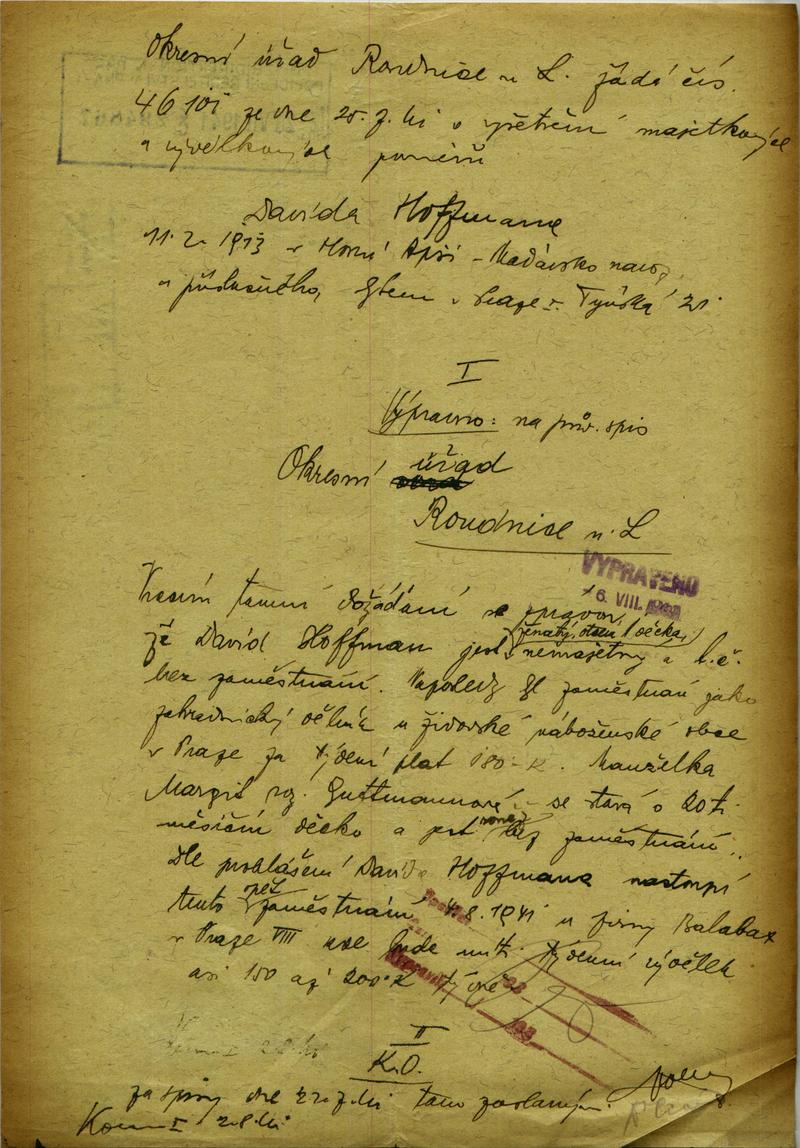 Okresní úřad Roudnice n L. žádá čís.
46101 ze dne 25.7.41 o vyšetření majetkových
a výdělkových poměrů
Davida Hoffmanna
11.2. 1913 v Horní Apši - Maďarsko naroz.
a příslušného, bytem v Praze I. Týnská 21
I
Vypraveno: na prův. spis
Okresní úřad
Roudnice n. L
VYPRAVENO
6. VIII.
K tamní dožádání se
(ženatý, otec 1 děcka,)
že David Hoffman jest nemajetný a t.č.
bez zaměstnání. Naposledy byl zaměstnán jako
zahradnický dělník u židovské náboženské obce
v Praze za týdení plat 180.- K. Manželka
Margit roz. Guttmannová se stará o 20ti
měsíční děcko a jest rovněž bez zaměstnání.
Dle prohlášení Davida Hoffmana nastoupí
tento opět zaměstnání 4.8.1941 u firmy Balabax
v Praze VIII kde bude míti týdenní výdělek
asi 150 až 200 K týdně
II
K.O.
za spisy dne 22.7.41 tam zaslaným.
Kom I 2.8.41